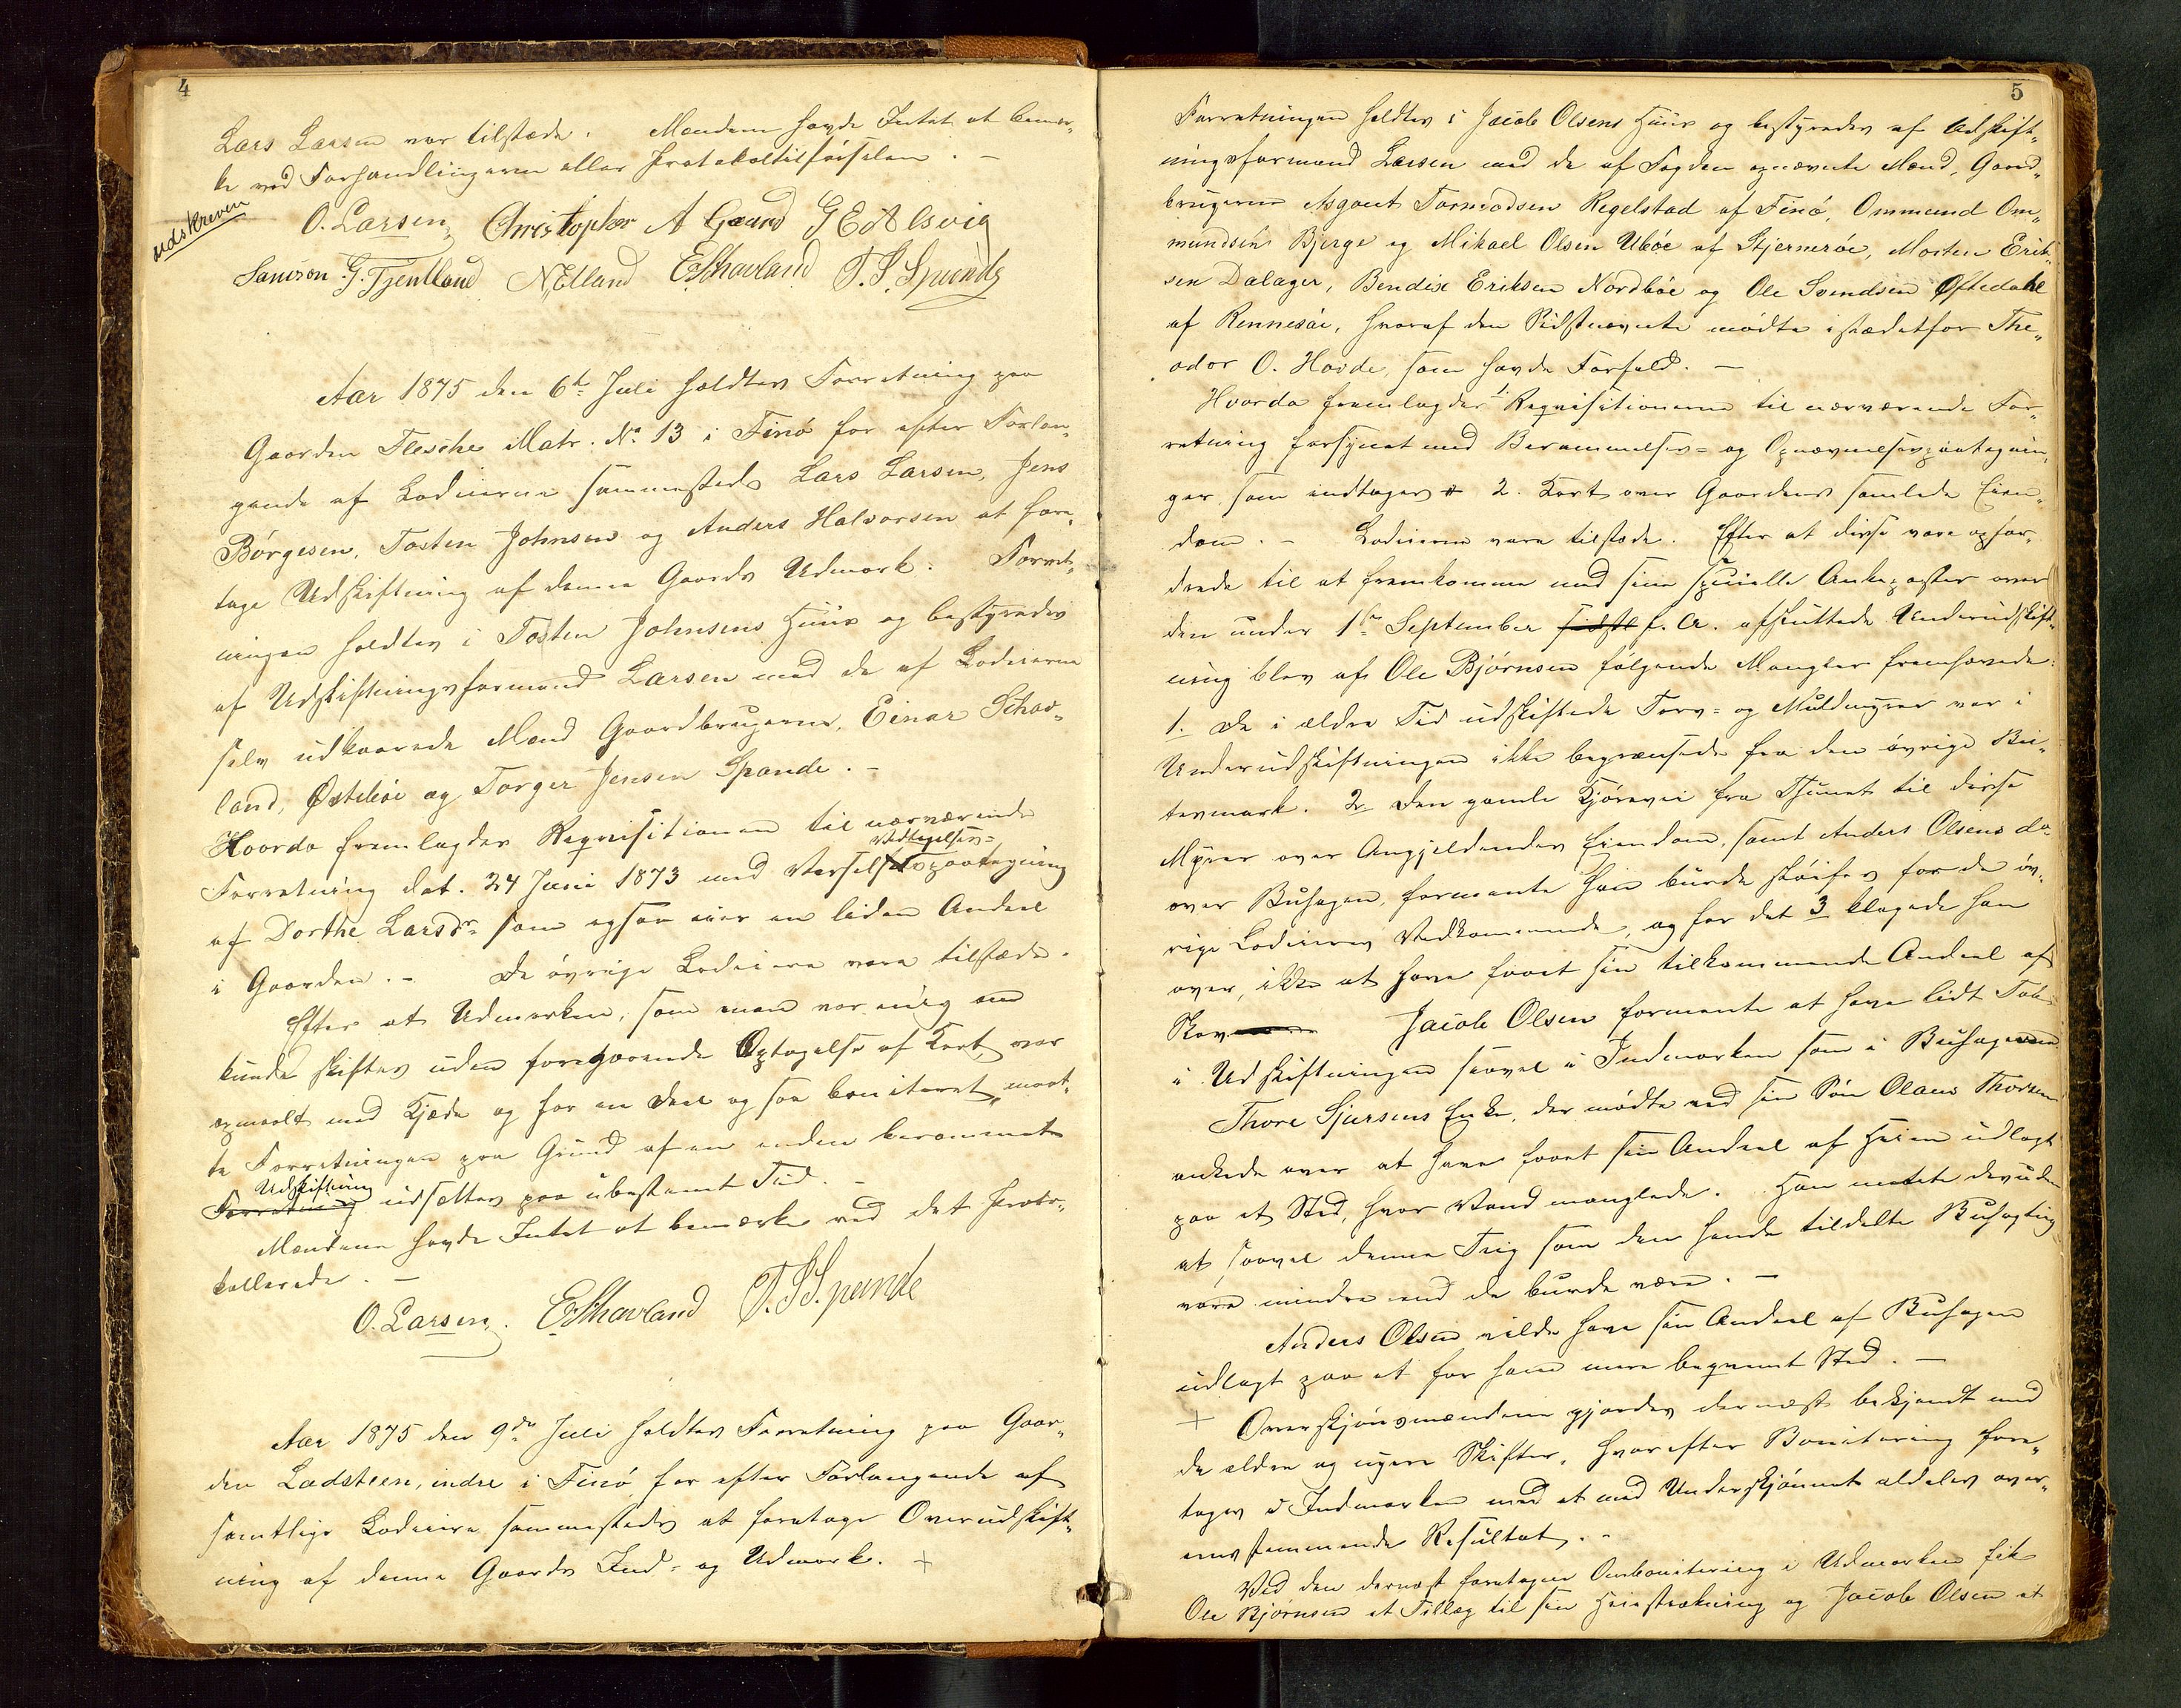 4
Lars Larsen var tilstede. Mændene havde Intet at bemær„
ke ved Forhandlingerne eller Protokoltilførselen. –
udskreven
O. Larsen, Christopher A Gaard G E Alsvig
Samson G. Tjentland N, Elland E Shavland T. S. Spande
Aar 1875 den 6te Juli holdtes Forretning paa
Gaarden Flesche Matr. No 13 i Finø for efter Forlan„
gende af Lodeierne sammesteds Lars Larsen, Jens
Børgesen, Tosten Johnsen og Anders Halvorsen at fore„
tage Udskiftning af denne Gaards Udmark. Forret„
ningen holdtes i Tosten Johnsens Huus og bestyredes
af Udskiftningsformand Larsen med de af Lodeierne
selv udkaarede Mænd Gaardbrugerne, Einar Schav„
land, Østebøe og Torger Jensen Spande. –
Hvorda fremlagdes Requisitionen til nærværende
Vedtagelses=
Forretning dat. 24 Juni 1873 med Varsels paategning
af Dorthe Larsdr som ogsaa eier en liden Andeel
i Gaarden. – De øvrige Lodeiere vare tilstede.
Efter at Udmarken, som man var enig om
kunde skiftes uden foregaaende Optagelse af Kart, var
opmaalt med Kjæde og for en Deel og saa boniteret, maat„
te Forretningen paa Grund af en anden berammet
Udskiftning
Forretning udsættes paa ubestemt Tid. –
Mændene havde Intet at bemærke ved det Proto„
kollerede. –
O. Larsen. E Shavland T. S S. pande
Aar 1875 den 9de Juli holdtes Forretning paa Gaar„
den Ladsteen, indre i Finø for efter Forlangende af
samtlige Lodeiere sammesteds at foretage Overudskift„
ning af denne Gaards Ind- og Udmark. +
5
Forretningen holdtes i Jacob Olsens Huus og bestyredes af Udskift„
ningsformand Larsen med de af Fogden opnævnte Mænd, Gaard„
brugerne Asgaut Tormodsen Regelstad af Finø, Ommund Om„
mundsen Bjerge og Mikael Olsen Ubøe af Stjernerøe, Morten Erik„
sen Dalager, Bendix Eriksen Nordbøe og Ole Svendsen Øftedahl
af Rennesøe, hvoraf den Sidstnævnte mødte istædetfor The„
odor O. Hovde, som havde Forfald. –
Hvorda fremlagdes 1. Requisitionerne til nærværende For„
retning forsynet med Berammelses= og Opnævnelsespaategnin„
ger som indtages 2. Kart over Gaardens samlede Eien„
dom. – Lodeierne vare tilstede. Efter at disse vare opfor„
drede til at fremkomme med sine specielle Ankeposter over
den under 1ste September sidstl f. A. afsluttede Underudskift„
ning blev af Ole Bjørnsen følgende Mangler fremhævede:
1. De i ældre Tid udskiftede Torv= og Muldmyrer var i
Underudskiftningen ikke begrændsede fra den øvrige Bei„
temark. 2 Den gamle Kjørevei fra Thunet til disse
Myrer over Angjeldendes Eiendom, samt Anders Olsens do
over Buhagen, formente han burde sløifes for de øv„
rige Lodeieres Vedkommende, og for det 3 klagede han
over, ikke at have faaet sin tilkommende Andeel af
Skov Jacob Olsen formente at have lidt Tab
i Udskiftningen saavel i Indmarken som i Buhagerne
Thore Sjursens Enke, der mødte ved sin Søn Olaus Thorsen
ankede over at have faaet sin Andeel af Heien udlagt
paa et Sted, hvor Vand manglede. Han mente desuden
at saavel denne Teig som den hende tildelte Buhagteig
være mindre end de burde være. –
Anders Olsen vilde have sin Andeel af Buhagen
udlagt paa et for ham mere beqvemt Sted. –
+ Overskjønsmændene gjordes dernæst bekjendt med
de ældre og nyere Skifter, hvorefter Bonitering fore„
toges i Indmarken med et med Underskjønnet aldeles over„
ensstemmende Resultat. –
Ved den dernæst foretagne Ombonitering i Udmarken fik
Ole Bjørnsen et Tillæg til sin Heiestrækning og Jacob Olsen et